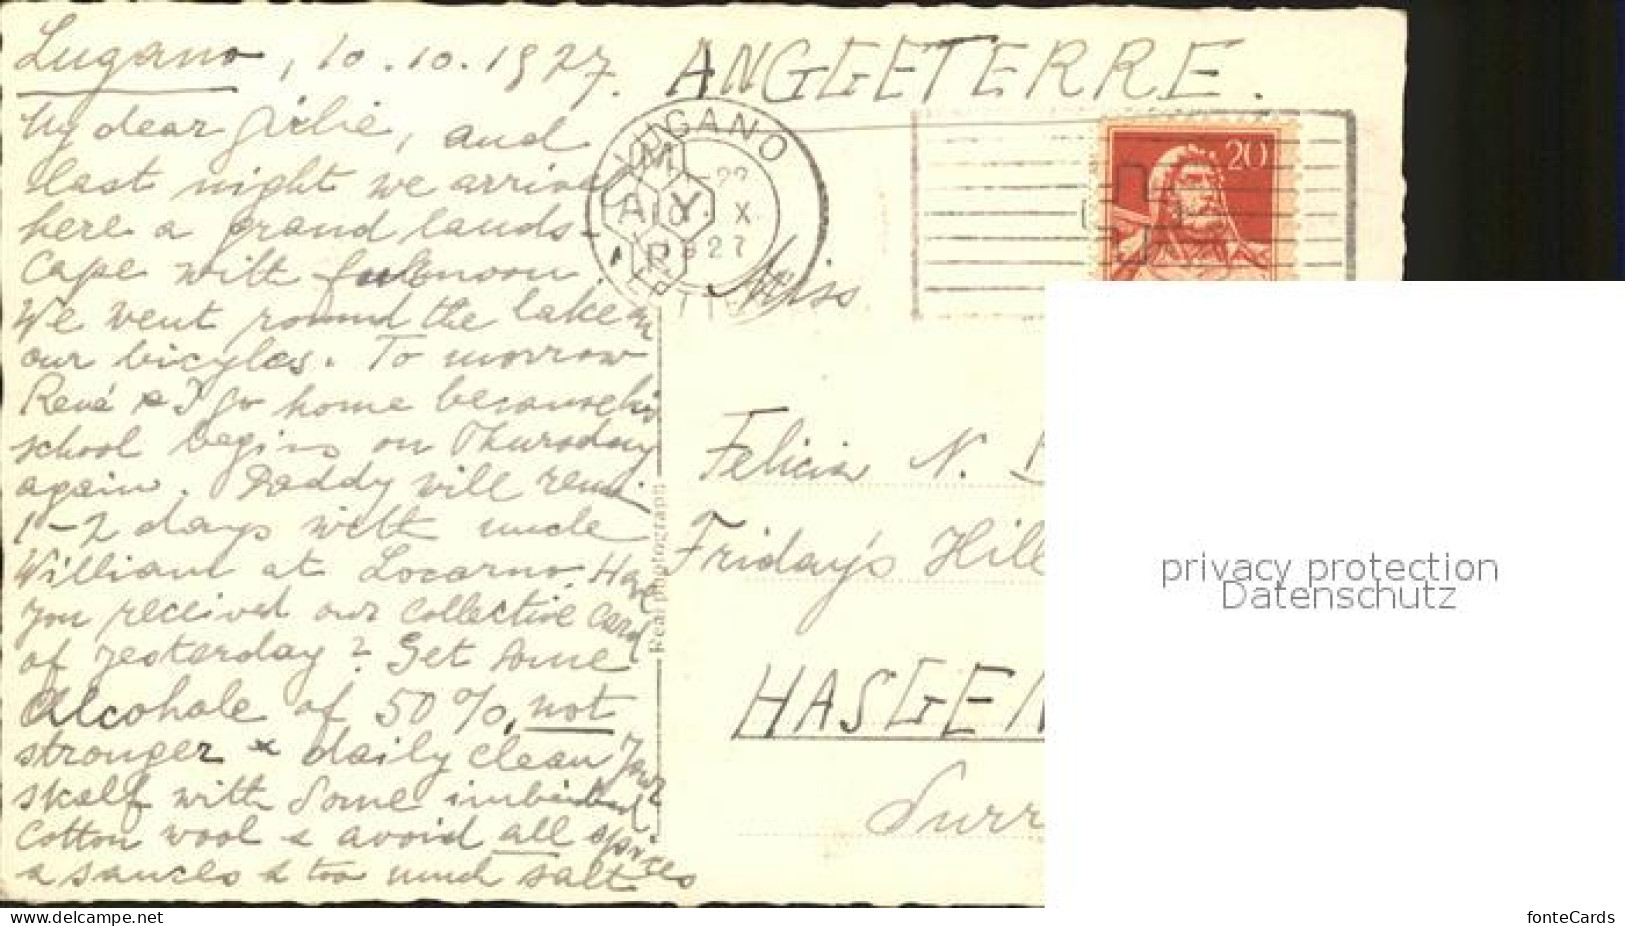 Lugano, 10.10.1927. ANGGETERRE.
My dear Girlie, and
last night we arrive
here a grand lands-
cape with fullmoon.
We went round the lake on
our bicycles. To morrow
René & I go home because his
school begins on Thursday
again. Daddy will remain
1-2 days with uncle
William at Locarno. Have
you received our collective card
of yesterday? Get some
Alcohole of 50 %, not
stronger & daily clean your
skalf with some imbibed
cotton wool & avoid all spices
& sauces & too much salt
LUGANO
MAY.R
10 X
1927
20
Miss
Felicia N.
Friday's Hill
HASGEM
Surr
Real photograph
privacy protection
Datenschutz
ansichtskarten-center.de
fonteCards